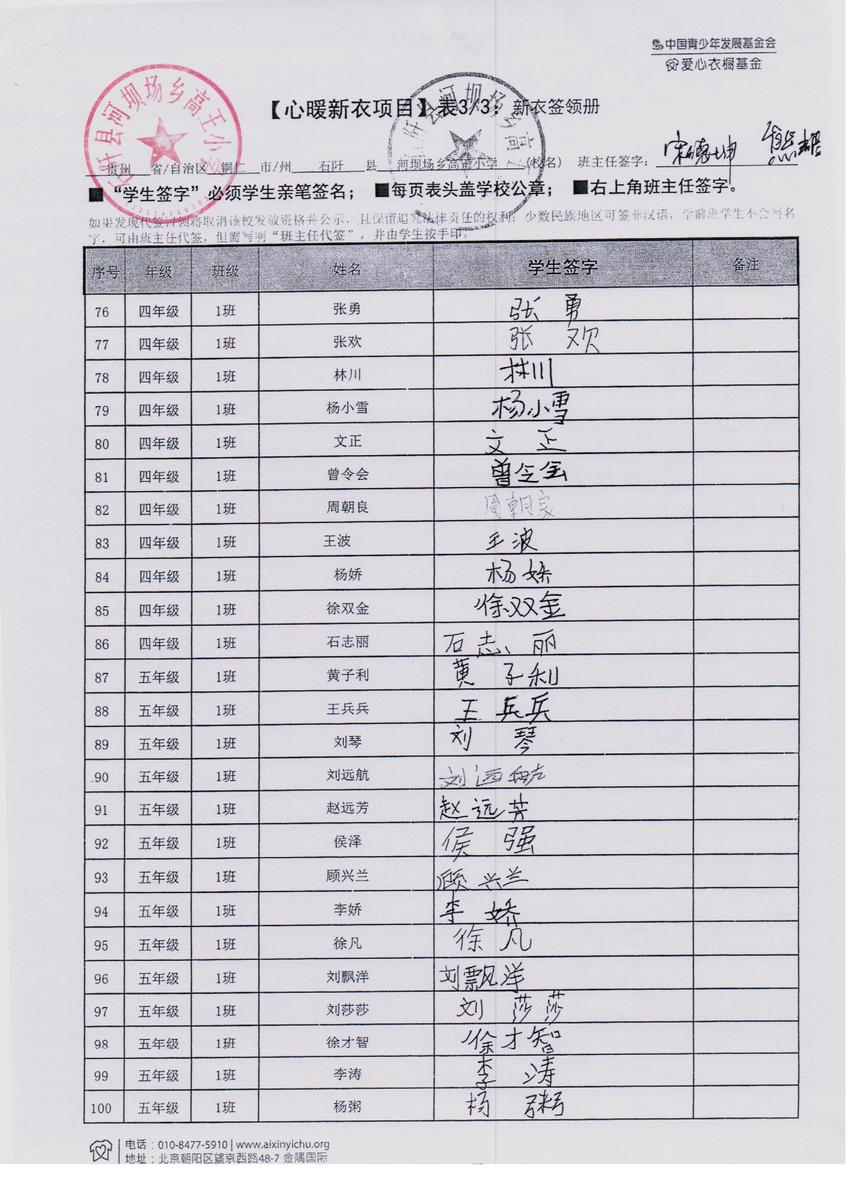 中国青少年发展基金会
爱心衣橱基金
【心暖新衣项目】表3/3：新衣签领册
贵州 省/自治区 铜仁 市/州 石阡 县 河坝场乡高王小学 (校名) 班主任签字：宋德坤
石阡县河坝场乡高王小学
■“学生签字”必须学生亲笔签名；■每页表头盖学校公章；■右上角班主任签字。
如果发现代签冒领将取消该校发放资格并公示，且保留追究法律责任的权利；少数民族地区可签非汉语，学前班学生不会写名
字，可由班主任代签，但需写明“班主任代签”，并由学生按手印。
序号 年级 班级 姓名 学生签字 备注
76 四年级 1班 张勇 张勇
77 四年级 1班 张欢 张欢
78 四年级 1班 林川 林川
79 四年级 1班 杨小雪 杨小雪
80 四年级 1班 文正 文正
81 四年级 1班 曾令会 曾令会
82 四年级 1班 周朝良 周朝良
83 四年级 1班 王波 王波
84 四年级 1班 杨娇 杨娇
85 四年级 1班 徐双金 徐双金
86 四年级 1班 石志丽 石志丽
87 五年级 1班 黄子利 黄子利
88 五年级 1班 王兵兵 王兵兵
89 五年级 1班 刘琴 刘琴
90 五年级 1班 刘远航 刘远航
91 五年级 1班 赵远芳 赵远芳
92 五年级 1班 侯泽 侯强
93 五年级 1班 顾兴兰 顾兴兰
94 五年级 1班 李娇 李娇
95 五年级 1班 徐凡 徐凡
96 五年级 1班 刘飘洋 刘飘洋
97 五年级 1班 刘莎莎 刘莎莎
98 五年级 1班 徐才智 徐才智
99 五年级 1班 李涛 李涛
100 五年级 1班 杨粥 杨粥
电话：010-8477-5910 | www.aixinyichu.org
地址：北京朝阳区望京西路48-7 金隅国际